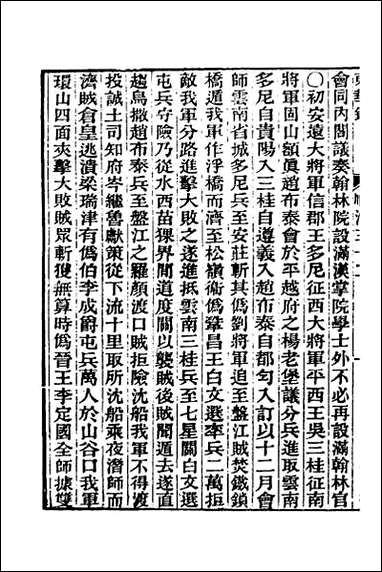 會同內閣議奏翰林院設滿漢掌院學士外不必再設滿翰林官
〇初安遠大將軍信郡王多尼征西大將軍平西王吳三桂征南
將軍固山額眞趙布泰會於平越府之楊老堡議分兵進取雲南
多尼自貴陽入三桂自遵義入趙布泰自都勻入訂以十二月會
師雲南省城多尼兵至安莊斬其僞劉將軍追至盤江賊焚鐵鎖
橋遁我軍作浮橋而濟至松嶺衞僞鞏昌王白文選率兵二萬拒
敵我軍分路進擊大敗之遂進抵雲南三桂兵至七星關白文選
屯兵守險乃從水西苗猓界間道度關以襲賊後賊聞遁去遂直
趨烏撒趙布泰兵至盤江之羅顏渡口賊拒險沈船我軍不得渡
投誠土司知府岑繼魯獻策從下流十里取所沈船乘夜潛師而
濟賊倉皇逃潰梁瑞津有僞伯李成爵屯兵萬人於山谷口我軍
環山四面夾擊大敗賊眾斬獲無算時僞晉王李定國全師據雙